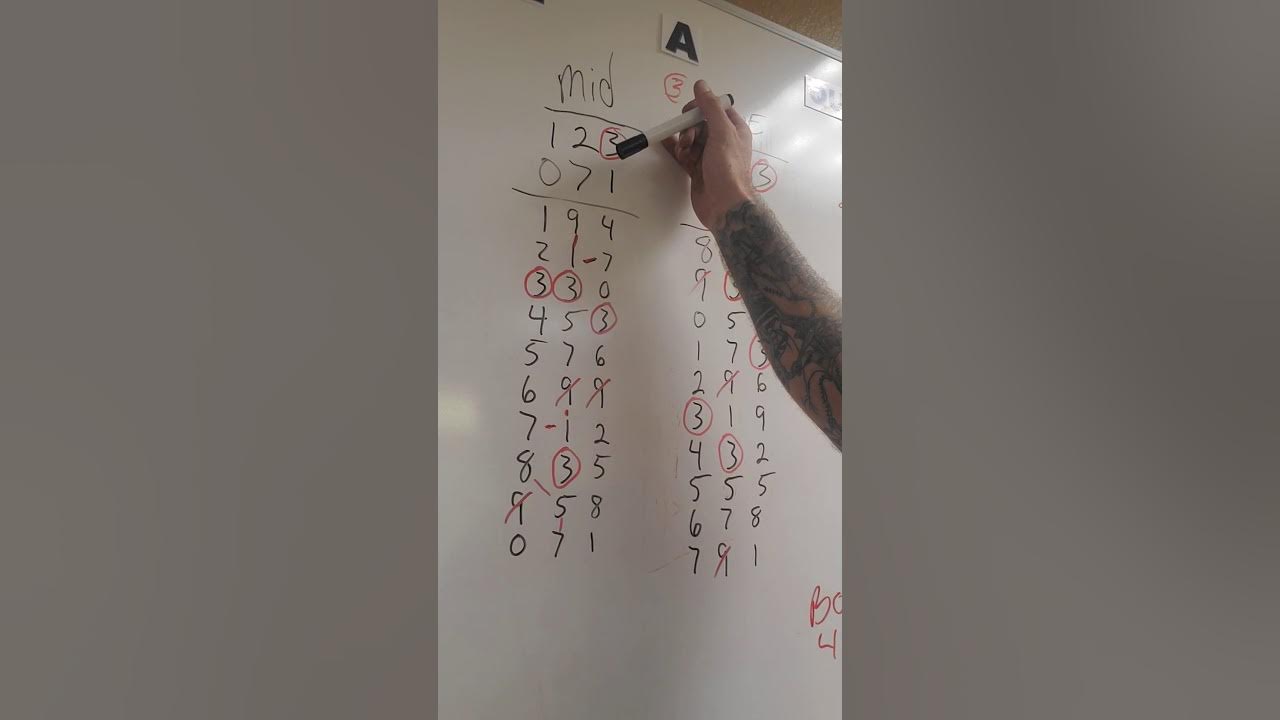 A
mid
3
1 2 3
E
0 7 1
3
1 9 4
8
2 1 - 7
9
3 3 0
0 5
4 5 3
1 7 3
5 7 6
2 9 6
6 9 9
3 1 9
7 - 1 2
4 3 2
8 3 5
5 5 5
9 5 8
6 7 8
0 7 1
7 9 1
BO
4